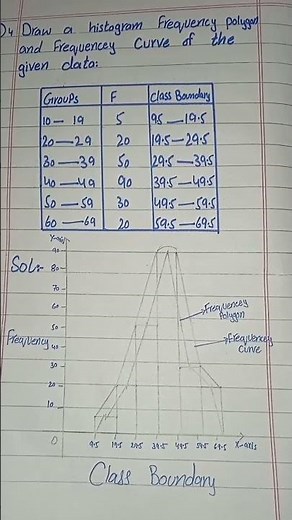 Q4 Draw a histogram Frequency polygon
and Frequencey Curve of the
given data:
Groups F Class Boundary
10 — 19 5 95 — 19.5
20 — 29 20 19.5 — 29.5
30 — 39 50 29.5 — 39.5
40 — 49 90 39.5 — 49.5
50 — 59 30 49.5 — 59.5
60 — 69 20 59.5 — 69.5
Y-axis
Sol:-
90
80
70
60
50
40
30
20
10
0
Frequency
Frequencey
Polygon
Frequencey
Curve
9.5 19.5 29.5 39.5 49.5 59.5 69.5 X-axis
Class Boundary